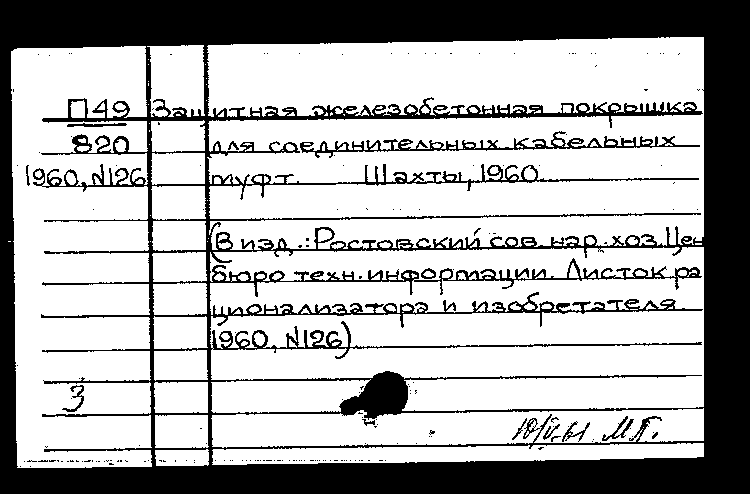 П49 Защитная железобетонная покрышка
820 для соединительных кабельных
1960, N126 муфт. Шахты, 1960.
(В изд.: Ростовский сов. нар. хоз. Цен
бюро техн. информации. Листок ра
ционализатора и изобретателя
1960, N126)
3
10/V.61 М.П.